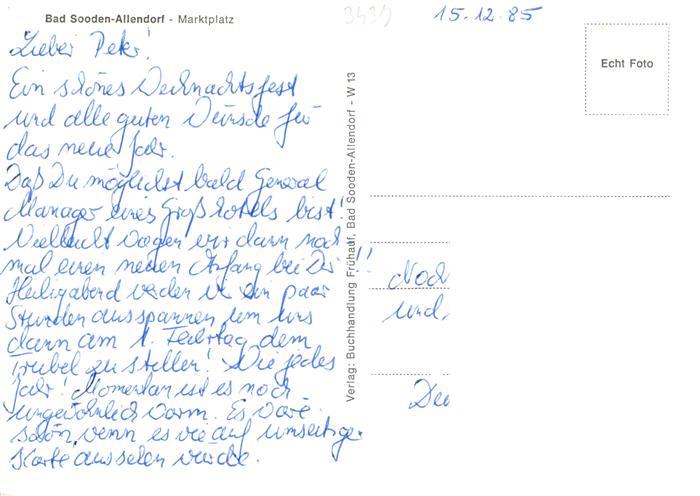 Bad Sooden-Allendorf - Marktplatz
3439
15.12.85
Lieber Peter!
Ein schönes Weihnachtsfest
und alle guten Wünsche für
das neue Jahr.
Daß Du möglichst bald General
Manager eines Großhotels bist!
Vielleicht wagen wir dann noch
mal einen neuen Anfang bei Dir!!
Heiligabend werden wir ein paar
Stunden ausspannen um uns
dann am 1. Feiertag dem
Trubel zu stellen! Wie jedes
Jahr! Momentan ist es noch
ungewöhnlich warm. Es wäre
schön, wenn es wie auf umseitiger
Karte aussehen würde.
Verlag: Buchhandlung Frühauf, Bad Sooden-Allendorf - W 13
Echt Foto
Noch
und